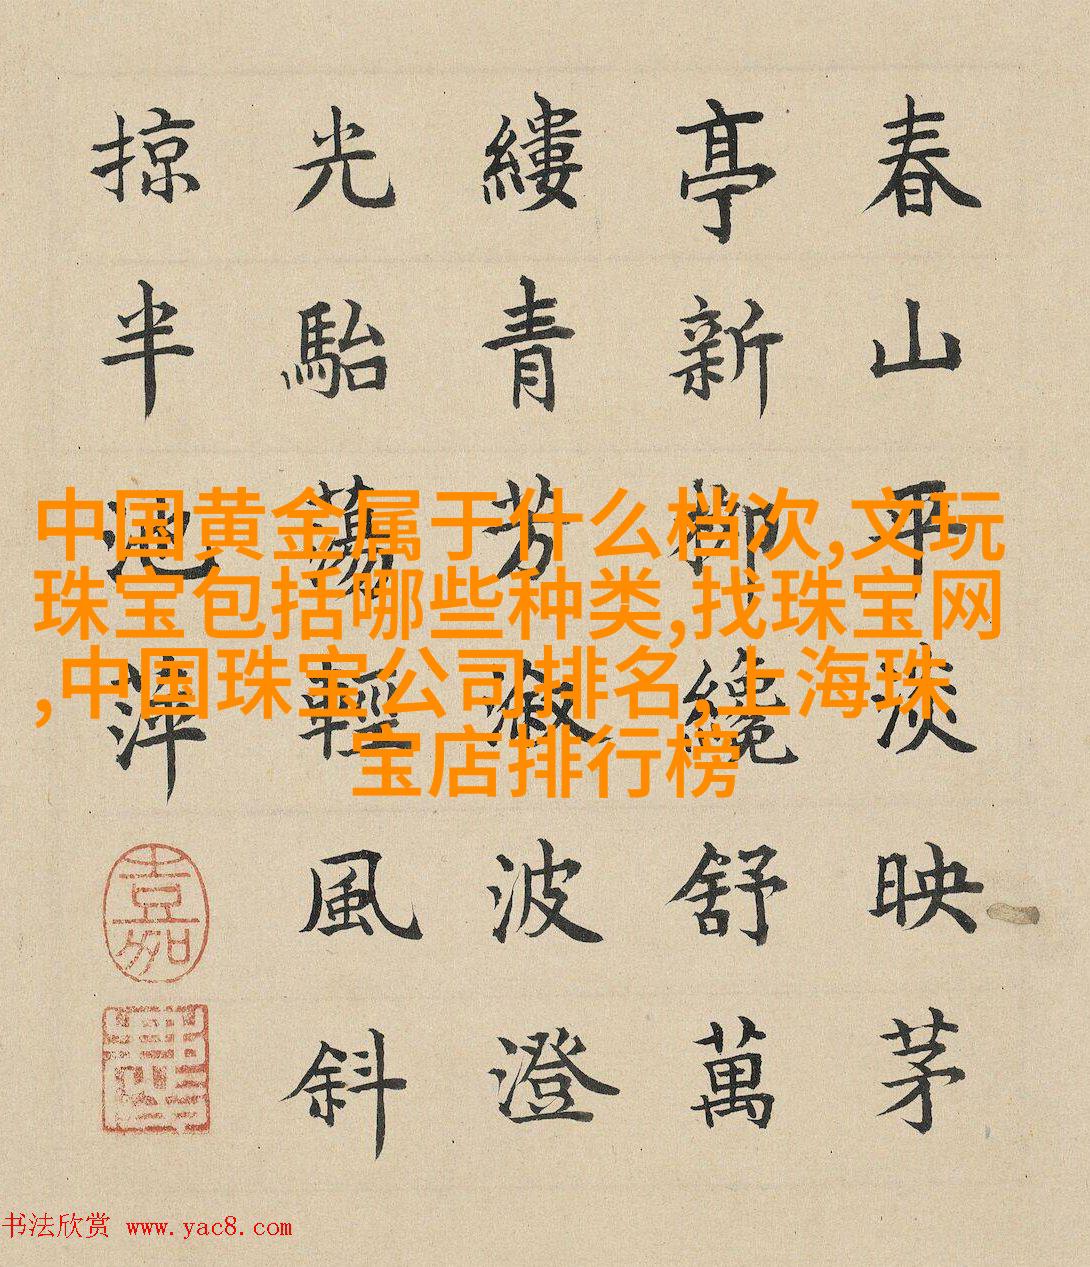 春山平淡映茅
亭新柳纔舒萬
縷青芳溆波澄
光駘蕩輕風斜
掠半池萍
嘉
中国黄金属于什么档次,文玩
珠宝包括哪些种类,找珠宝网
,中国珠宝公司排名,上海珠
宝店排行榜
书法欣赏 www.yac8.com